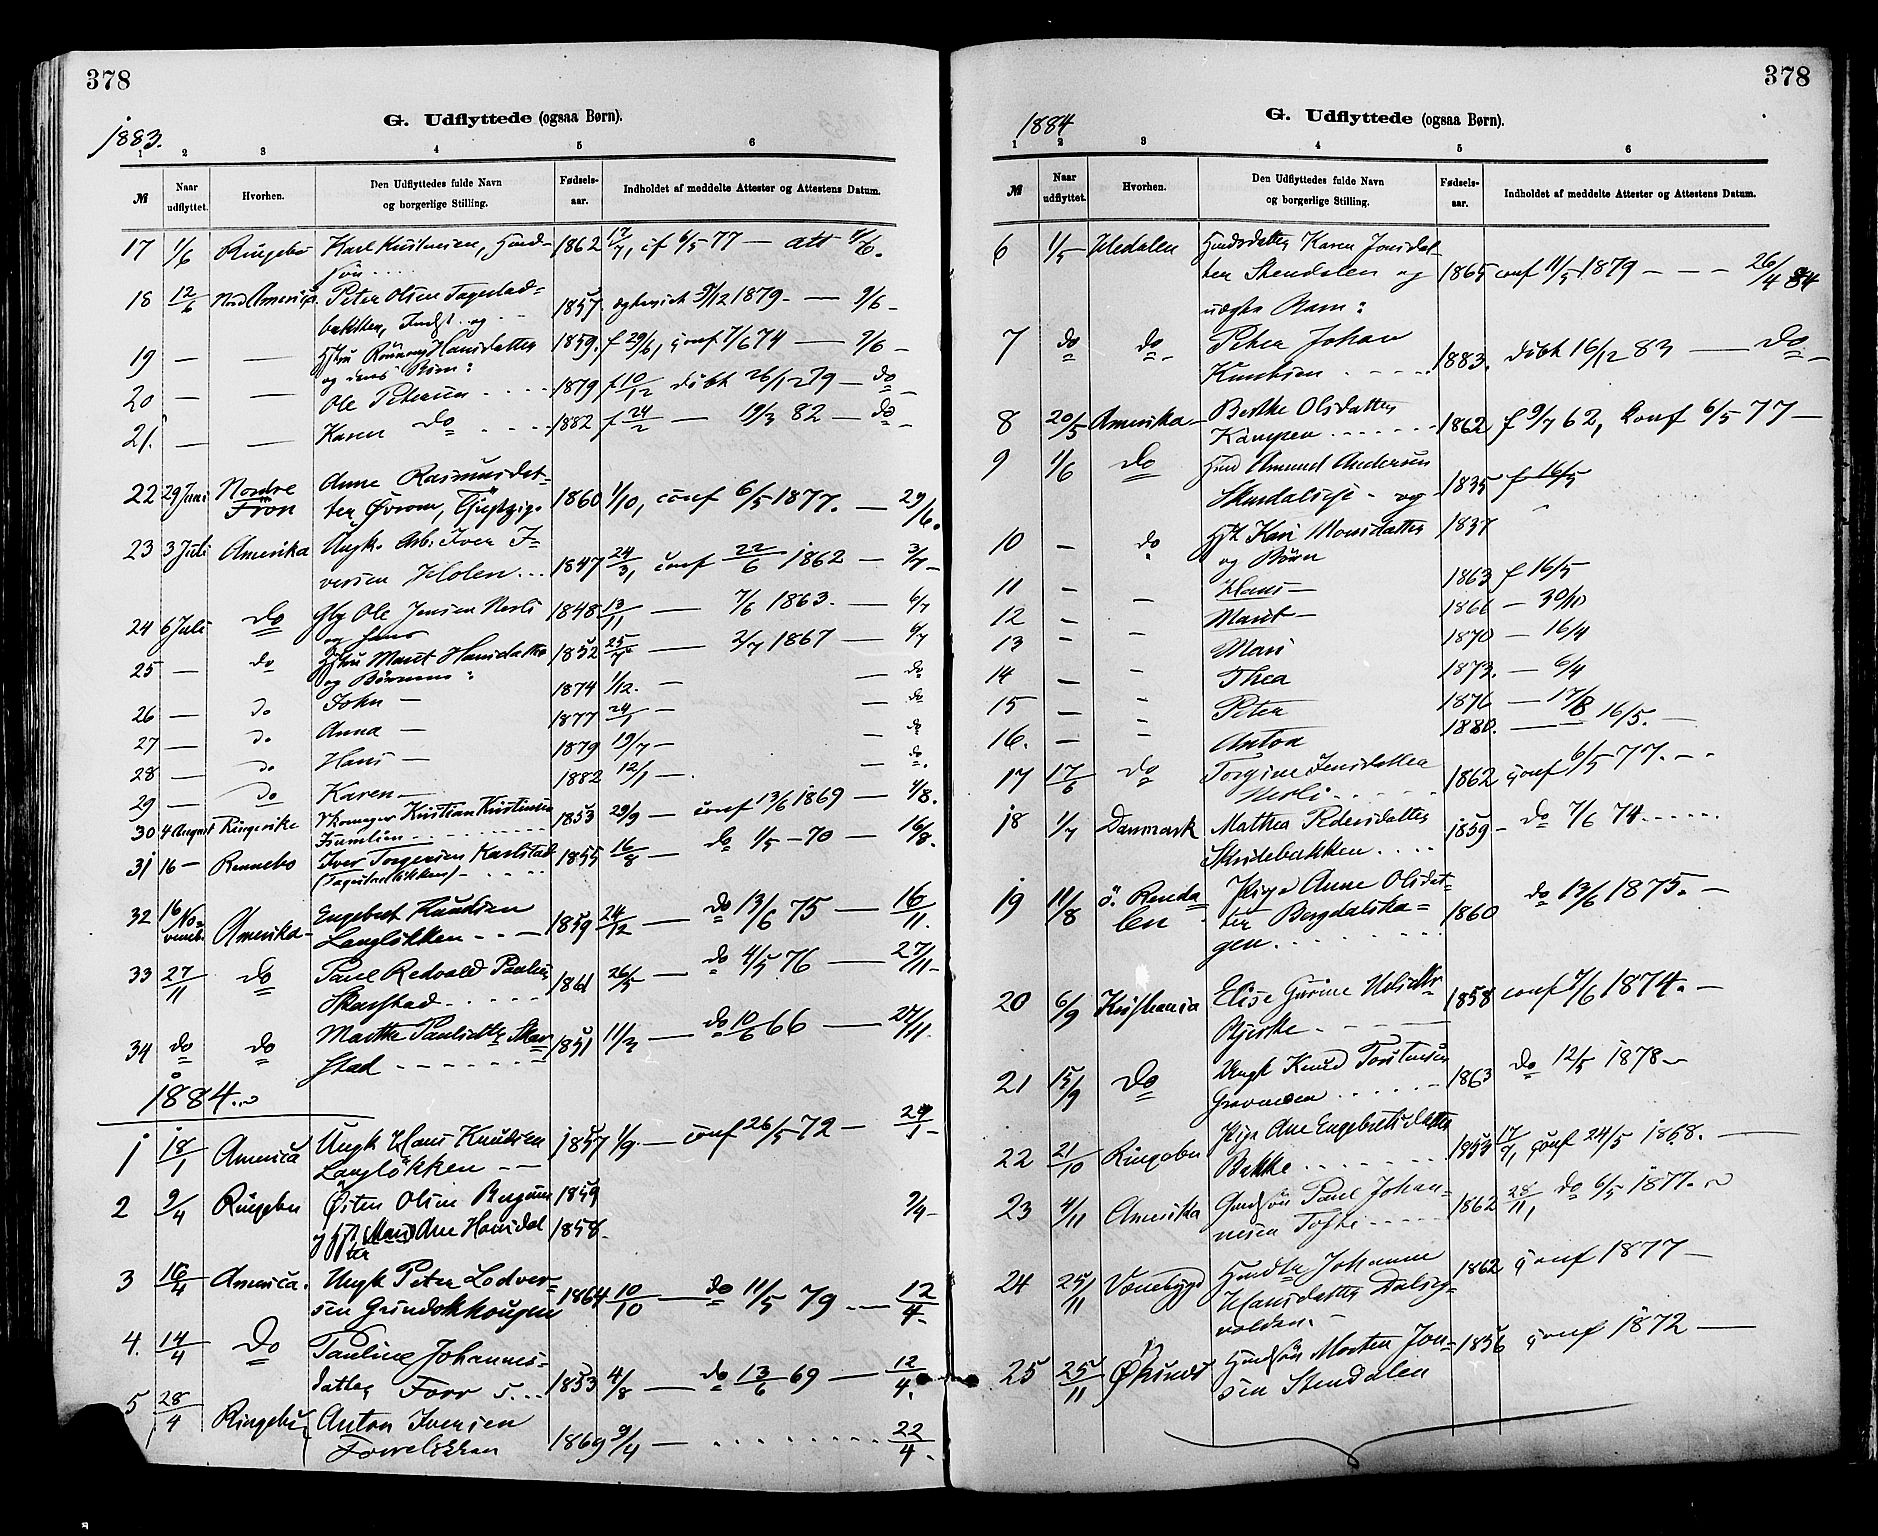 378
1883.
G. Udflyttede (ogsaa Børn).
1 2 3 4 5 6
№ Naar udflyttet. Hvorhen. Den Udflyttedes fulde Navn og borgerlige Stilling. Fødsels-aar. Indholdet af meddelte Attester og Attestens Datum.
17 1/6 Ringebo Karl Kristensen, 1862 17/7, cf 6/5 77 — att 1/6.
18 12/6 Nord America Peter Olsen 1857 9/12 1879 — 9/6 —
19 — — Hansdatter 1859. f 29/6, conf 7/6 74 — 9/6 —
og deres Børn:
20 — — Ole Petersen 1879 f 10/12 døbt 26/12 79 — do —
21. — — Karen do 1882 f 24/2 — 19/3 82 — do —
22 29 Juni Nordre Fron Anne Rasmusdat-
ter 1860 1/10, conf 6/5 1877. — 29/6.
23 3 Juli Amerika Ungk. Arb. Iver I-
versen Holen 1847 24/3, conf 22/6 1862 — 3/7 —
24 6 Juli do Gbr Ole Jensen Nerli 1848 13/11 — 7/6 1863. — 6/7
og hans
25 — do Hustru Marit Hansdatter 1852 25/7 — 2/7 1867 — 6/7
og Børnene:
26 — do John — 1874 1/12. — — do
27 — do Anna — 1877 24/1 — — do
28 — do Hans — 1879 19/7 — — do
29 — do Karen — 1882 12/1 — — do.
30 4 August Ringerike Skomager Kristian Kristensen 1853 29/9 — conf 13/6 1869 — 4/8.
31 16 — Rennebo Iver Torgersen Karlstad 1855 16/8 — do 1/5 — 70 — 16/8.
32 16 November Amerika — Engebret Knudsen
Langløkken 1859 24/12 — do 13/6 75 — 16/11.
33 27/11 do Paul Redvald Paulsen
Skarstad 1861 26/5 — do 4/5 76 — 27/11 —
34 do do Marthe Paulsdatter Skar-
stad 1851 11/3 — do 10/6 66 — 27/11.
1884.
1 18/1 America Ungk Hans Knudsen
Langløkken — 1857 1/9 — conf 26/5 72 — 29/1 —
2 9/4 Ringebu Østen Olsen 1859 9/4 —
og Hst. (Mari) Ane Hansdat
ter 1858.
3 16/4 America. Ungk Peter Lodver-
sen Grindokhougen 1864 10/10 — do 11/5 79 — 12/4.
4. 14/4 do Pauline Johannes-
datter Forr 1853 4/8 — do 13/6 69 — 12/4.
5 28/4 Ringebu Anton Iversen
1869 9/4 — 22/4.
378
1884
G. Udflyttede (ogsaa Børn).
1 2 3 4 5 6
№ Naar udflyttet. Hvorhen. Den Udflyttedes fulde Navn og borgerlige Stilling. Fødsels-aar. Indholdet af meddelte Attester og Attestens Datum.
6 1/5 Karen Jonsdat-
ter Stendalen og 1865 conf 11/5 1879 — — — 26/4 84
uægte Barn:
7 do do Peter Johan
Knudsen 1883. døbt 16/12 83 — do —
8 20/5 Amerika Berthe Olsdatter
Kampen 1862 f 9/7 62, conf 6/5 77 —
9 1/6 do Amund Andersen
og 1835 f 16/5
10 — do Hst. Kari Monsdatter 1837
og Børn
11 — — Hans — 1863 f 16/5
12 — — Marit — 1866 — 30/10
13 — — Mari 1870 — 16/4
14 — — Thea 1873. — 6/4
15 — — Peter 1876 — 17/8
16. — — Anton 1880. — 16/5. —
17 17/6 do Torgine Jensdatter
Nerli 1862 conf 6/5 77. —
18 1/7 Danmark Mathea Pedersdatter
Skridebakken 1859 — do 7/6 74
19 11/8 ö. Renda-
len Pige Anne Olsdat-
ter Bergdalsha-
gen 1860 do 13/6 1875. —
20 6/9 Kristiania Elise Gurine
Bjerke 1858 conf 7/6 1874. —
21 15/9 do Ungk Knud Torstensen
1863 do 12/5 1878
22 21/10 Ringebu Pige Ane Engebretsdatter
Bakke 1853 17/7, conf 24/5 1868. —
23 4/11 Amerika Gmdsøn Paul Johan-
nesen Tofte 1862 28/11, do 6/5 1877.
24 25/11 Vonebygd Johanne
Hansdatter Dalseg-
volden. 1862 conf 1877 —
25 25/11 Morten Jon-
sen Stendalen 1856 conf 1872 —